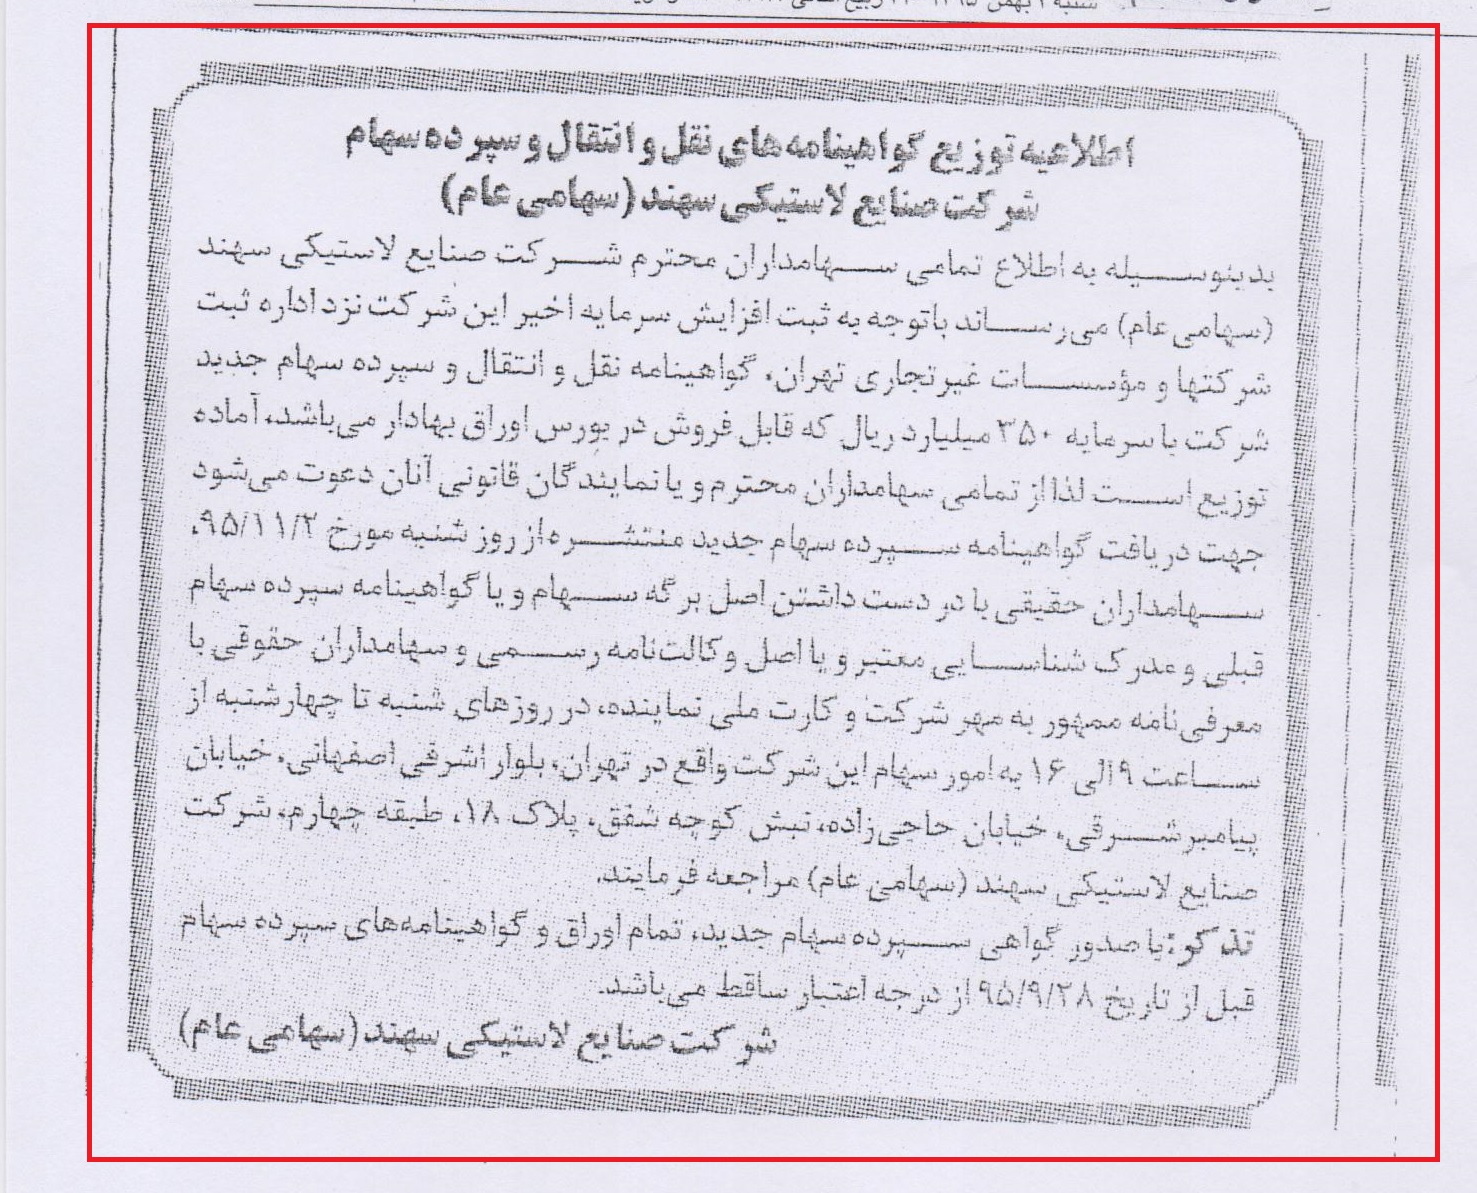 شنبه ۲ بهمن ۱۳۹۵
اطلاعیه توزیع گواهینامه‌های نقل و انتقال و سپرده سهام
شرکت صنایع لاستیکی سهند (سهامی عام)
بدینوسیله به اطلاع تمامی سهامداران محترم شرکت صنایع لاستیکی سهند
(سهامی عام) می‌رساند باتوجه به ثبت افزایش سرمایه اخیر این شرکت نزد اداره ثبت
شرکتها و مؤسسات غیرتجاری تهران، گواهینامه نقل و انتقال و سپرده سهام جدید
شرکت با سرمایه ۳۵۰ میلیارد ریال که قابل فروش در بورس اوراق بهادار می‌باشد، آماده
توزیع است لذا از تمامی سهامداران محترم و یا نمایندگان قانونی آنان دعوت می‌شود
جهت دریافت گواهینامه سپرده سهام جدید منتشره از روز شنبه مورخ ۹۵/۱۱/۲،
سهامداران حقیقی با در دست داشتن اصل برگه سهام و یا گواهینامه سپرده سهام
قبلی و مدرک شناسایی معتبر و یا اصل وکالت‌نامه رسمی و سهامداران حقوقی با
معرفی‌نامه ممهور به مهر شرکت و کارت ملی نماینده، در روزهای شنبه تا چهارشنبه از
ساعت ۹ الی ۱۶ به امور سهام این شرکت واقع در تهران، بلوار اشرفی اصفهانی، خیابان
پیامبر شرقی، خیابان حاجی‌زاده، نبش کوچه شفق، پلاک ۱۸، طبقه چهارم، شرکت
صنایع لاستیکی سهند (سهامی عام) مراجعه فرمایند.
تذکر: با صدور گواهی سپرده سهام جدید، تمام اوراق و گواهینامه‌های سپرده سهام
قبل از تاریخ ۹۵/۹/۲۸ از درجه اعتبار ساقط می‌باشد.
شرکت صنایع لاستیکی سهند (سهامی عام)